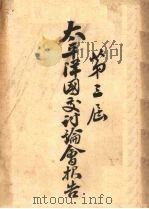 第三届
太平洋國交討論會报告